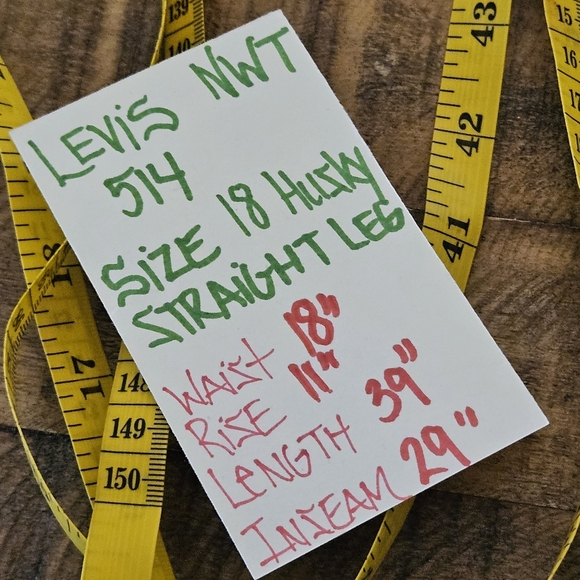 LEVIS NWT
514
SIZE 18 HUSKY
STRAIGHT LEG
WAIST 18"
RISE 11"
LENGTH 39"
INSEAM 29"
139
140
43
42
41
15
16
17
18
17
148
149
150